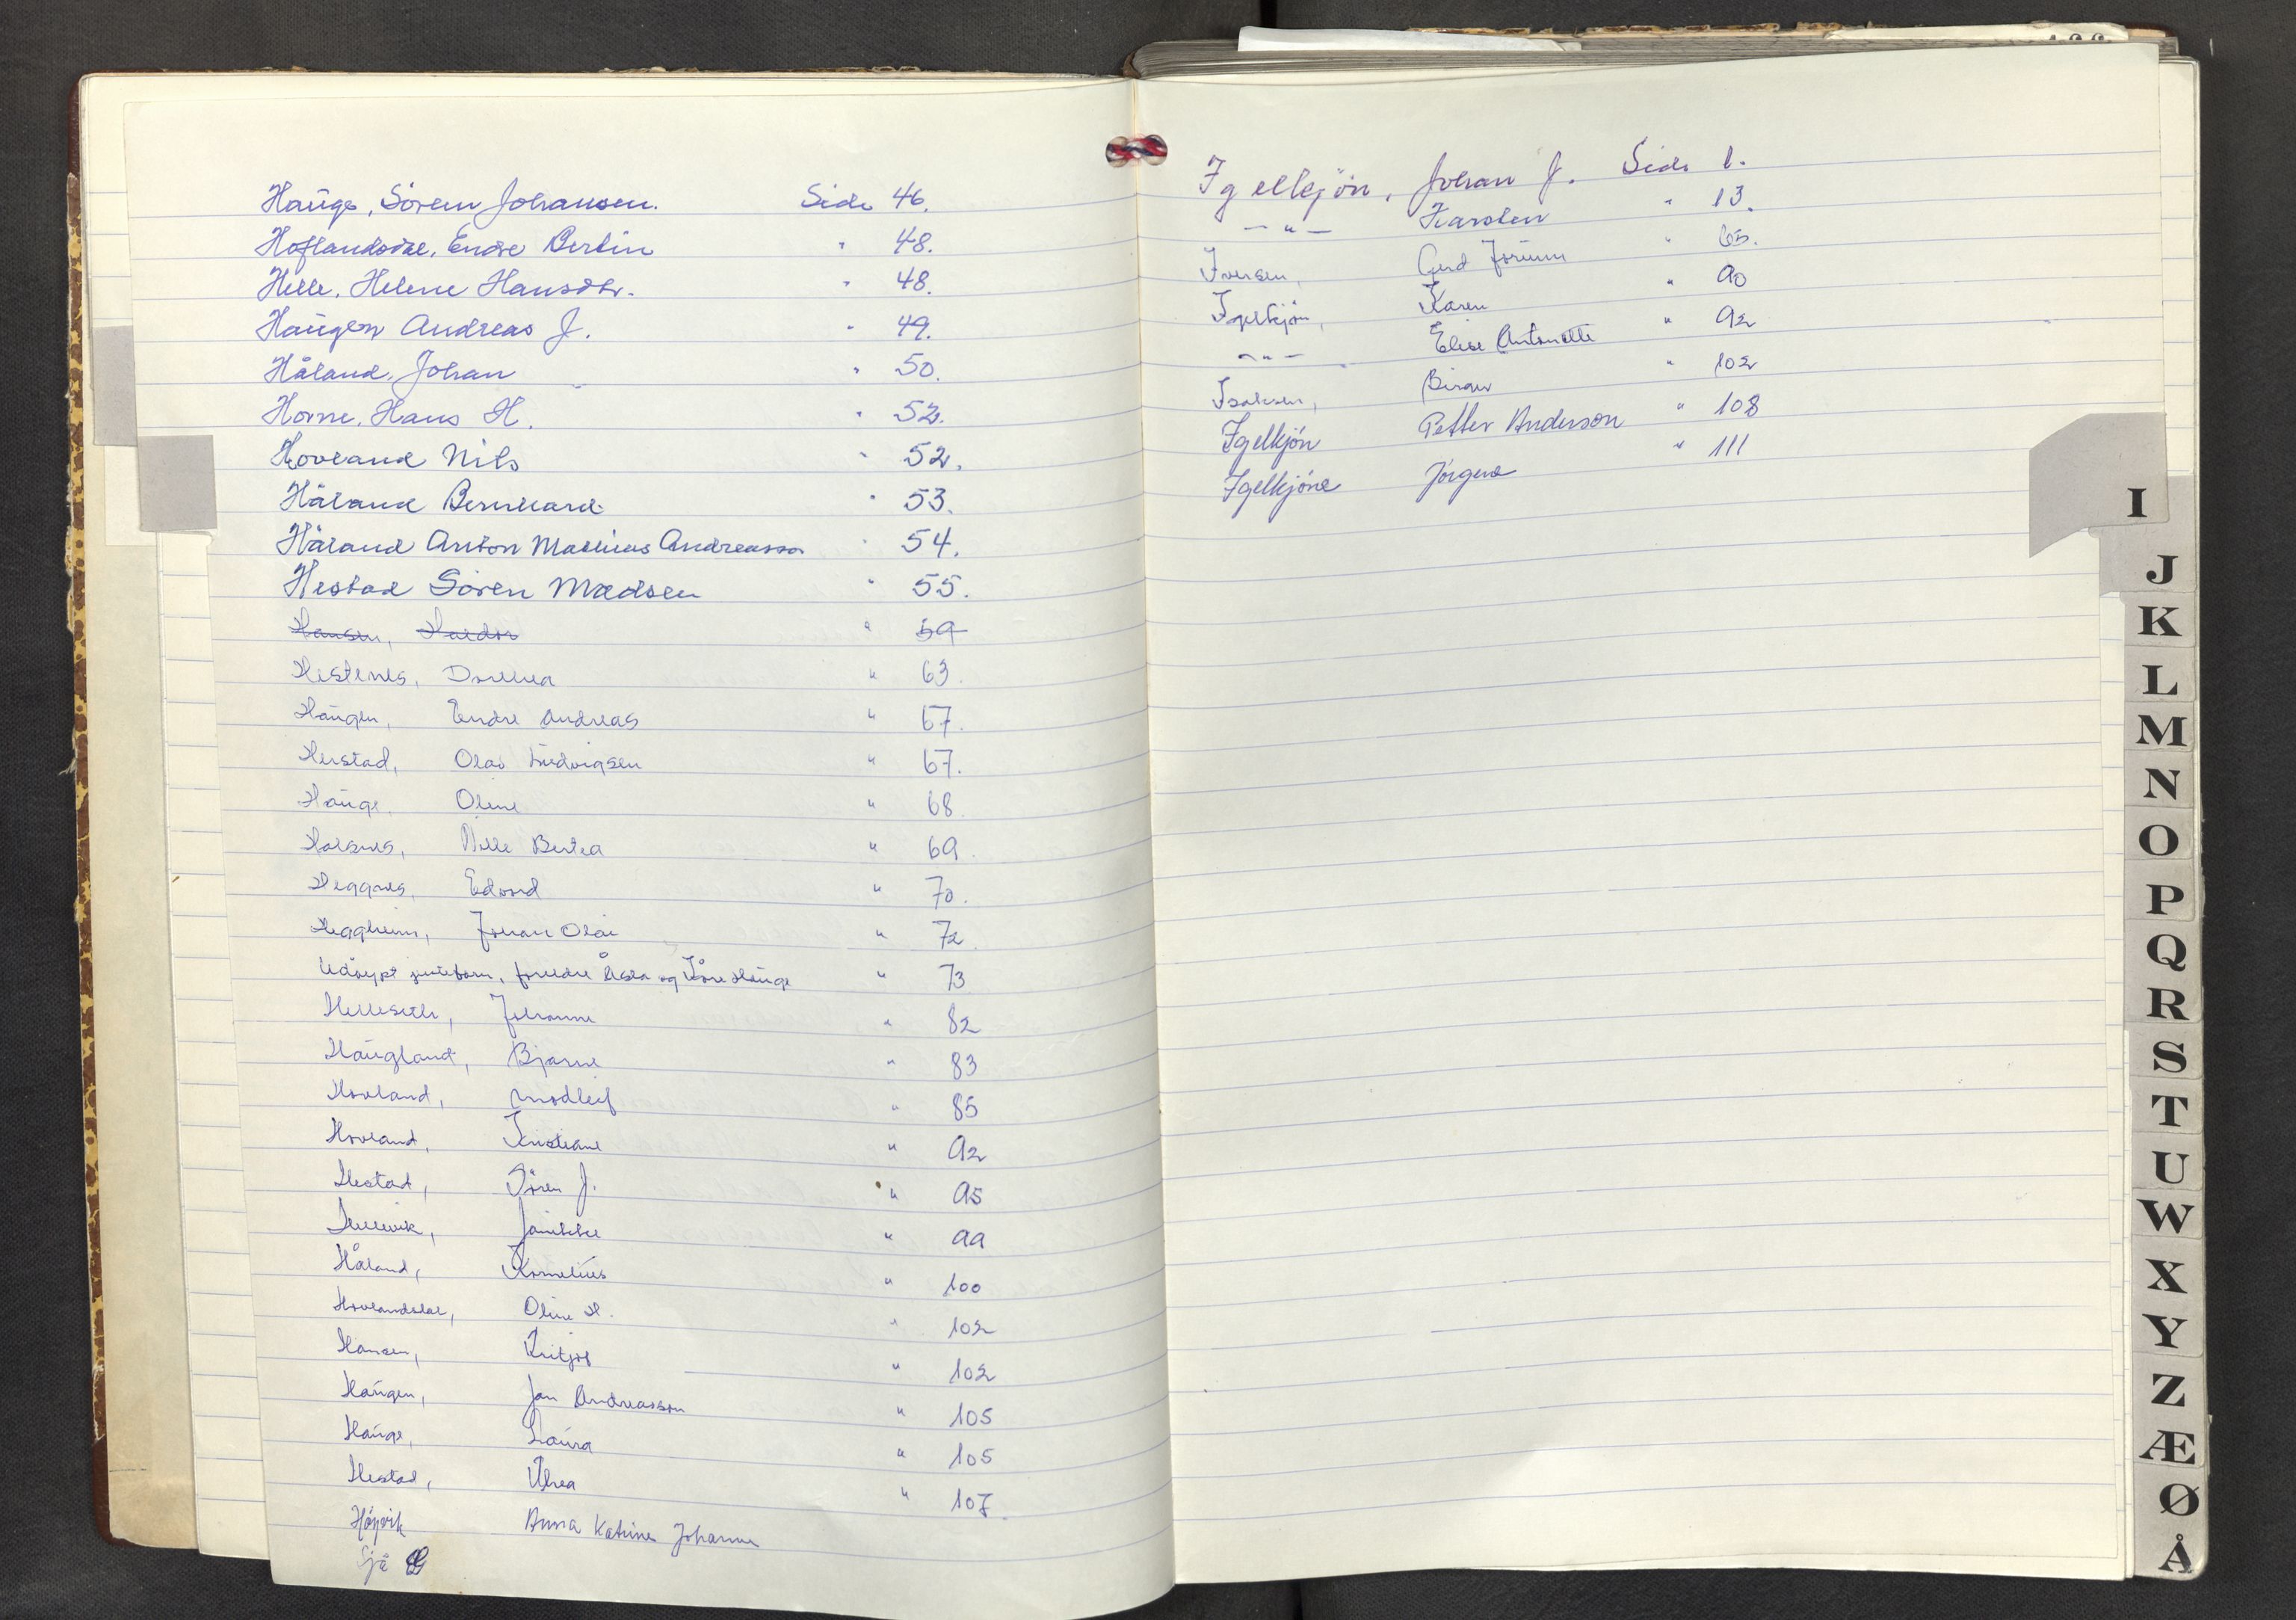 Hauge, Sören Johansen. Side 46.
Hoflandsdal, Endre Bertin " 48.
Helle, Helene Hansdtr. " 48.
Haugen Andreas J. " 49.
Håland, Johan " 50.
Horne, Hans H. " 52.
Hovland Nils " 52.
Håland Bernhard " 53.
Håland Anton Mathias Andreasson " 54.
Hestad Sören Madsen " 55.
Hansen, Haldor " 59
Hestenes, Dorthea " 63.
Haugen, Endre Andreas " 67.
Herstad, Olav Ludvigsen " 67.
Hauge, Oline " 68
Holsnes, Nille Bertea " 69.
Heggnes, Edvard " 70.
Heggheim, Johan Olai " 72.
Udöypt jentebarn, foreldre og Tore Hauge " 73
Helleseth, Johanne " 82
Haugland, Bjarne " 83
Hovland, Modleif " 85
Hovland, Kristiane " 92
Hestad, Sören J. " 95
Hellevik, Jannikke " 99
Håland, Kornelius " 100
Hovlandsdal, Oline H. " 102
Hansen, Fritjof " 102
Haugen, Jan Andreasson " 105
Hauge, Laura " 105
Hestad, Thea " 107.
Höyvik Anna Katrine Johanne
Sjå G
Igelkjön, Johan J. Side 1.
— " — Karsten " 13.
Iversen, Gerd Jorunn " 65.
Igelkjön, Karen " 90
— " — Elise Antonette " 92
Isaksen, Birger " 102
Igelkjön Petter Anderson " 108
Igelkjöne Jörgine " 111
I
J
K
L
M
N
O
P
Q
R
S
T
U
W
X
Y
Z
Æ
Ø
Å